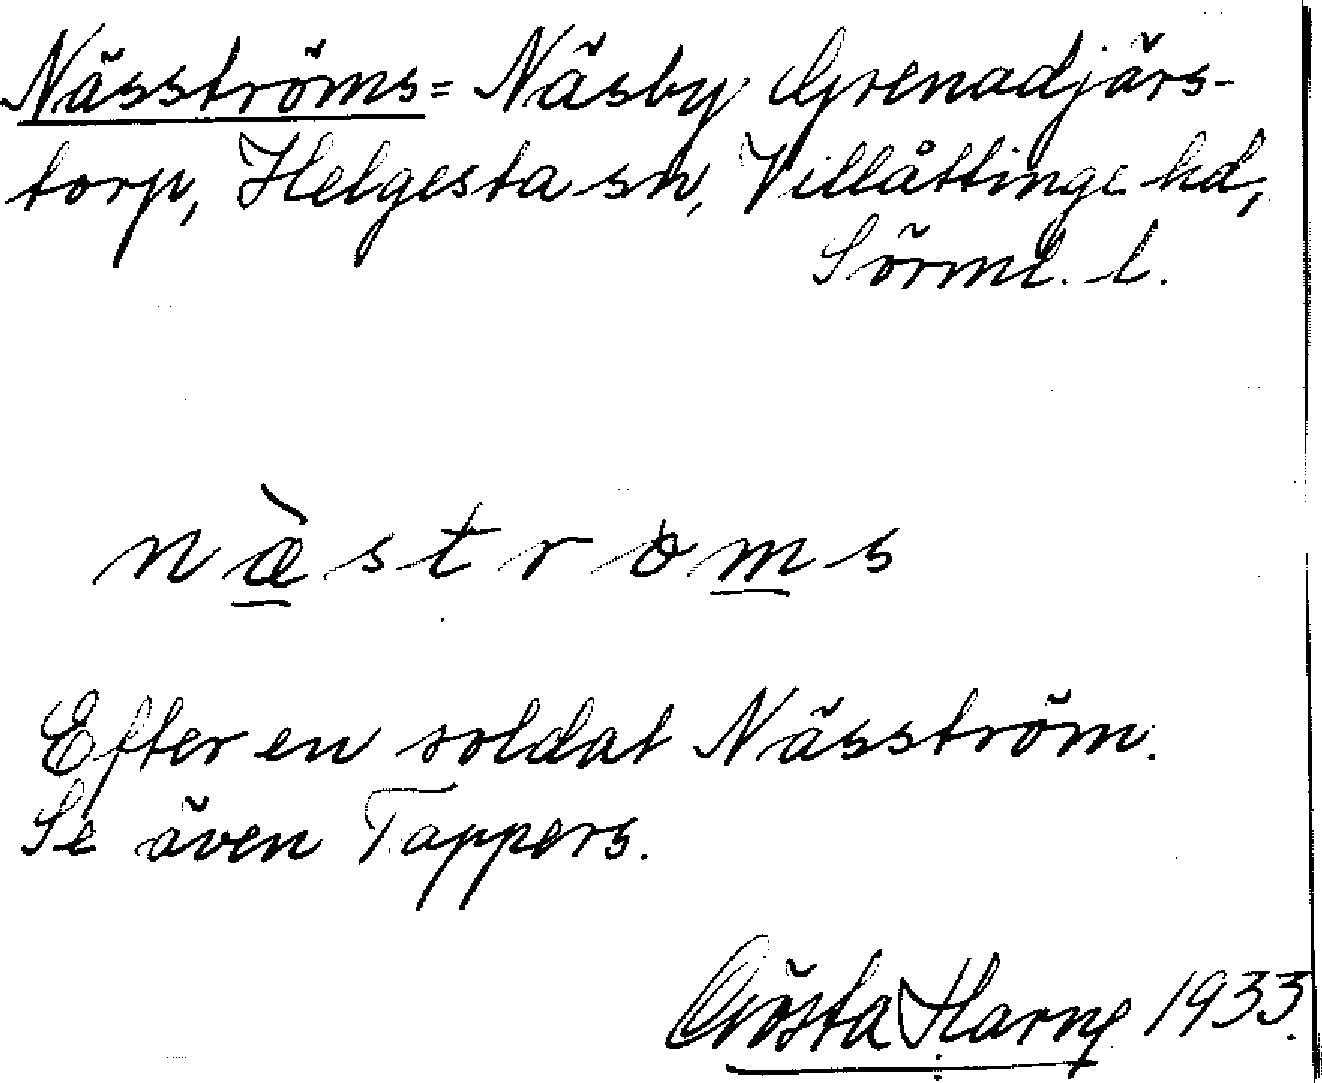 Näsströms = Näsby Grenadjärs-
torp, Helgesta sn, Villåttinge hd,
Sörml. l.
næ̀stroms
Efter en soldat Näsström.
Se även Tappers.
Gösta Harne 1933.